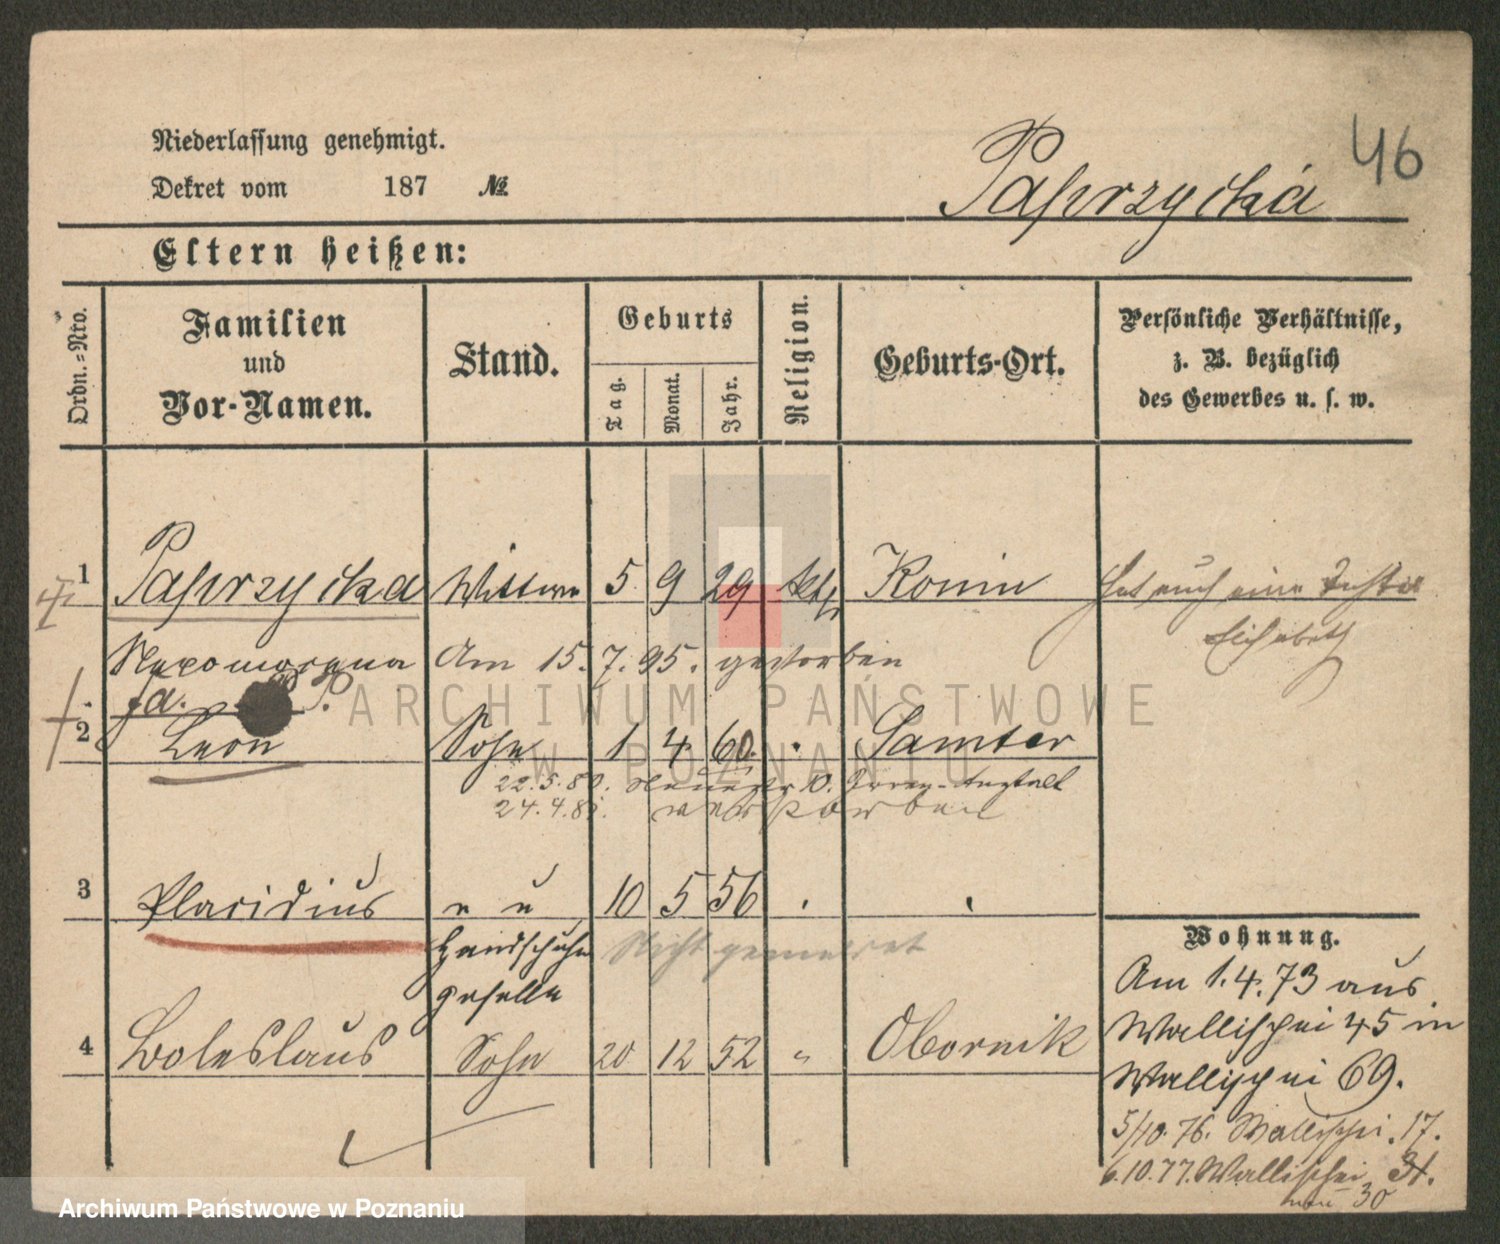 46
Niederlassung genehmigt.
Dekret vom 187 №
Paprzycka
Eltern heißen:
Ordn.=Nro.
Familien
und
Vor-Namen.
Stand.
Geburts
Tag.
Monat.
Jahr.
Religion.
Geburts-Ort.
Persönliche Verhältnisse,
z. B. bezüglich
des Gewerbes u. s. w.
1 Paprzycka Wittwe 5 9 29 kth Konin Hat auch eine Tochter
Elisabeth
Am 15.7.95. gestorben
2 Leon Sohn 1 4 60. Samter
22.5.80.
24.4.
3 Placidius " " 10 5 56
Handschuhm
geselle
Nicht gemeldet
4 Boleslaus Sohn 20 12 52 " Obornik
Wohnung.
Am 1.4.73 aus
Wallischei 45 in
Wallischei 69.
5/10.76. Wallischei 17.
6.10.77. Wallischei 31.
neu 30
ARCHIWUM PAŃSTWOWE
W POZNANIU
Archiwum Państwowe w Poznaniu